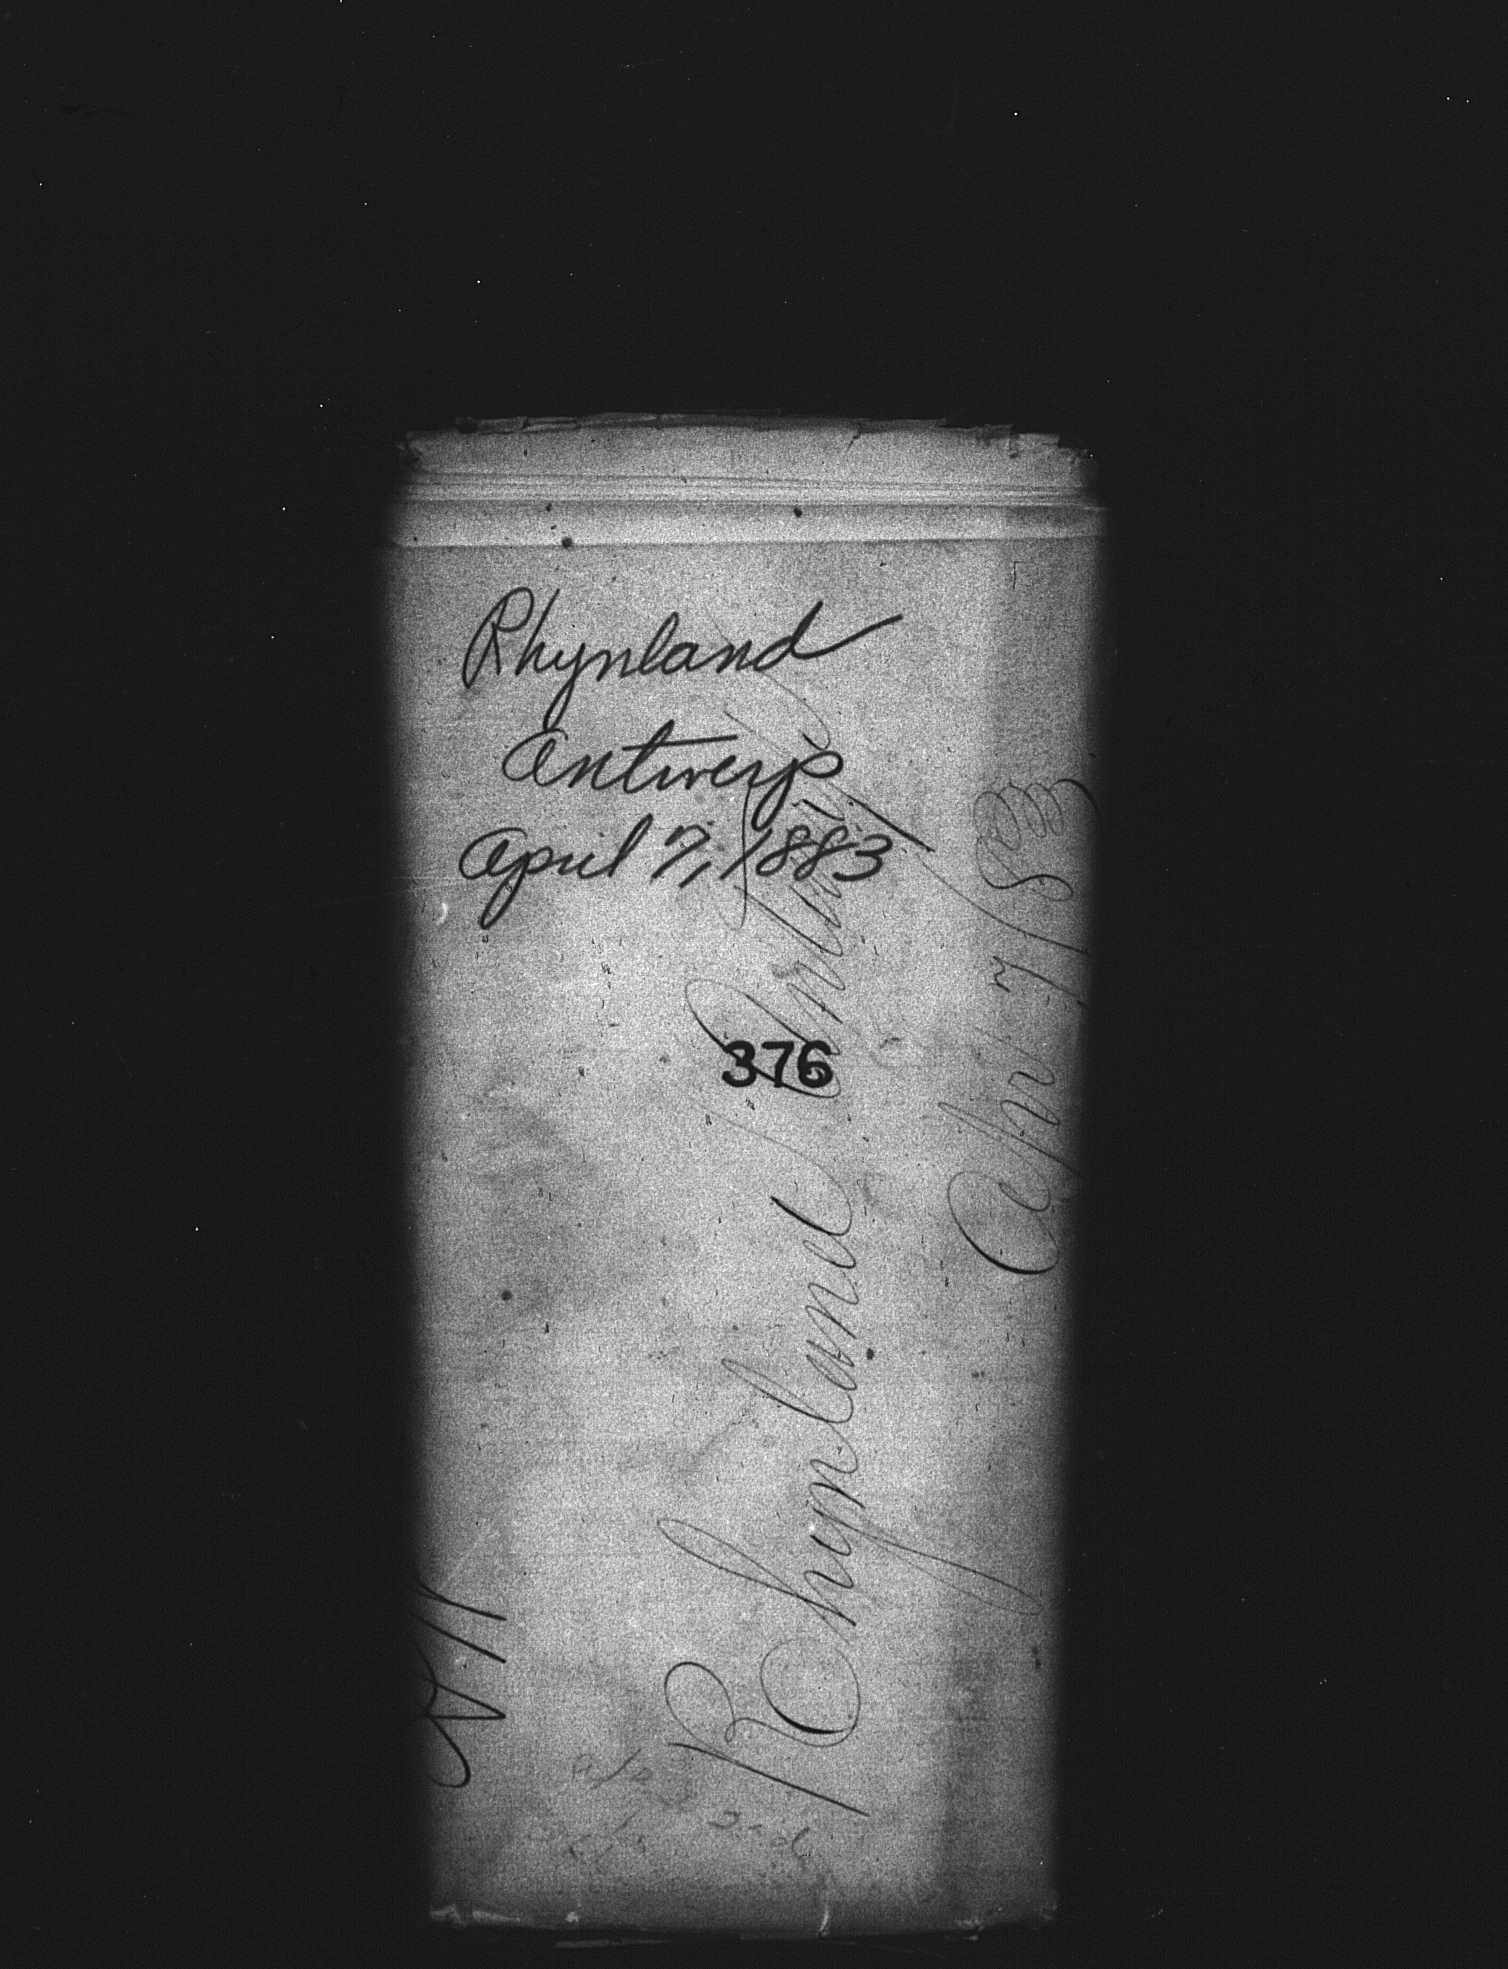 Rhynland
Antwerp
April 7, 1883
376
Rhynland Antwerp
Apr 7/83